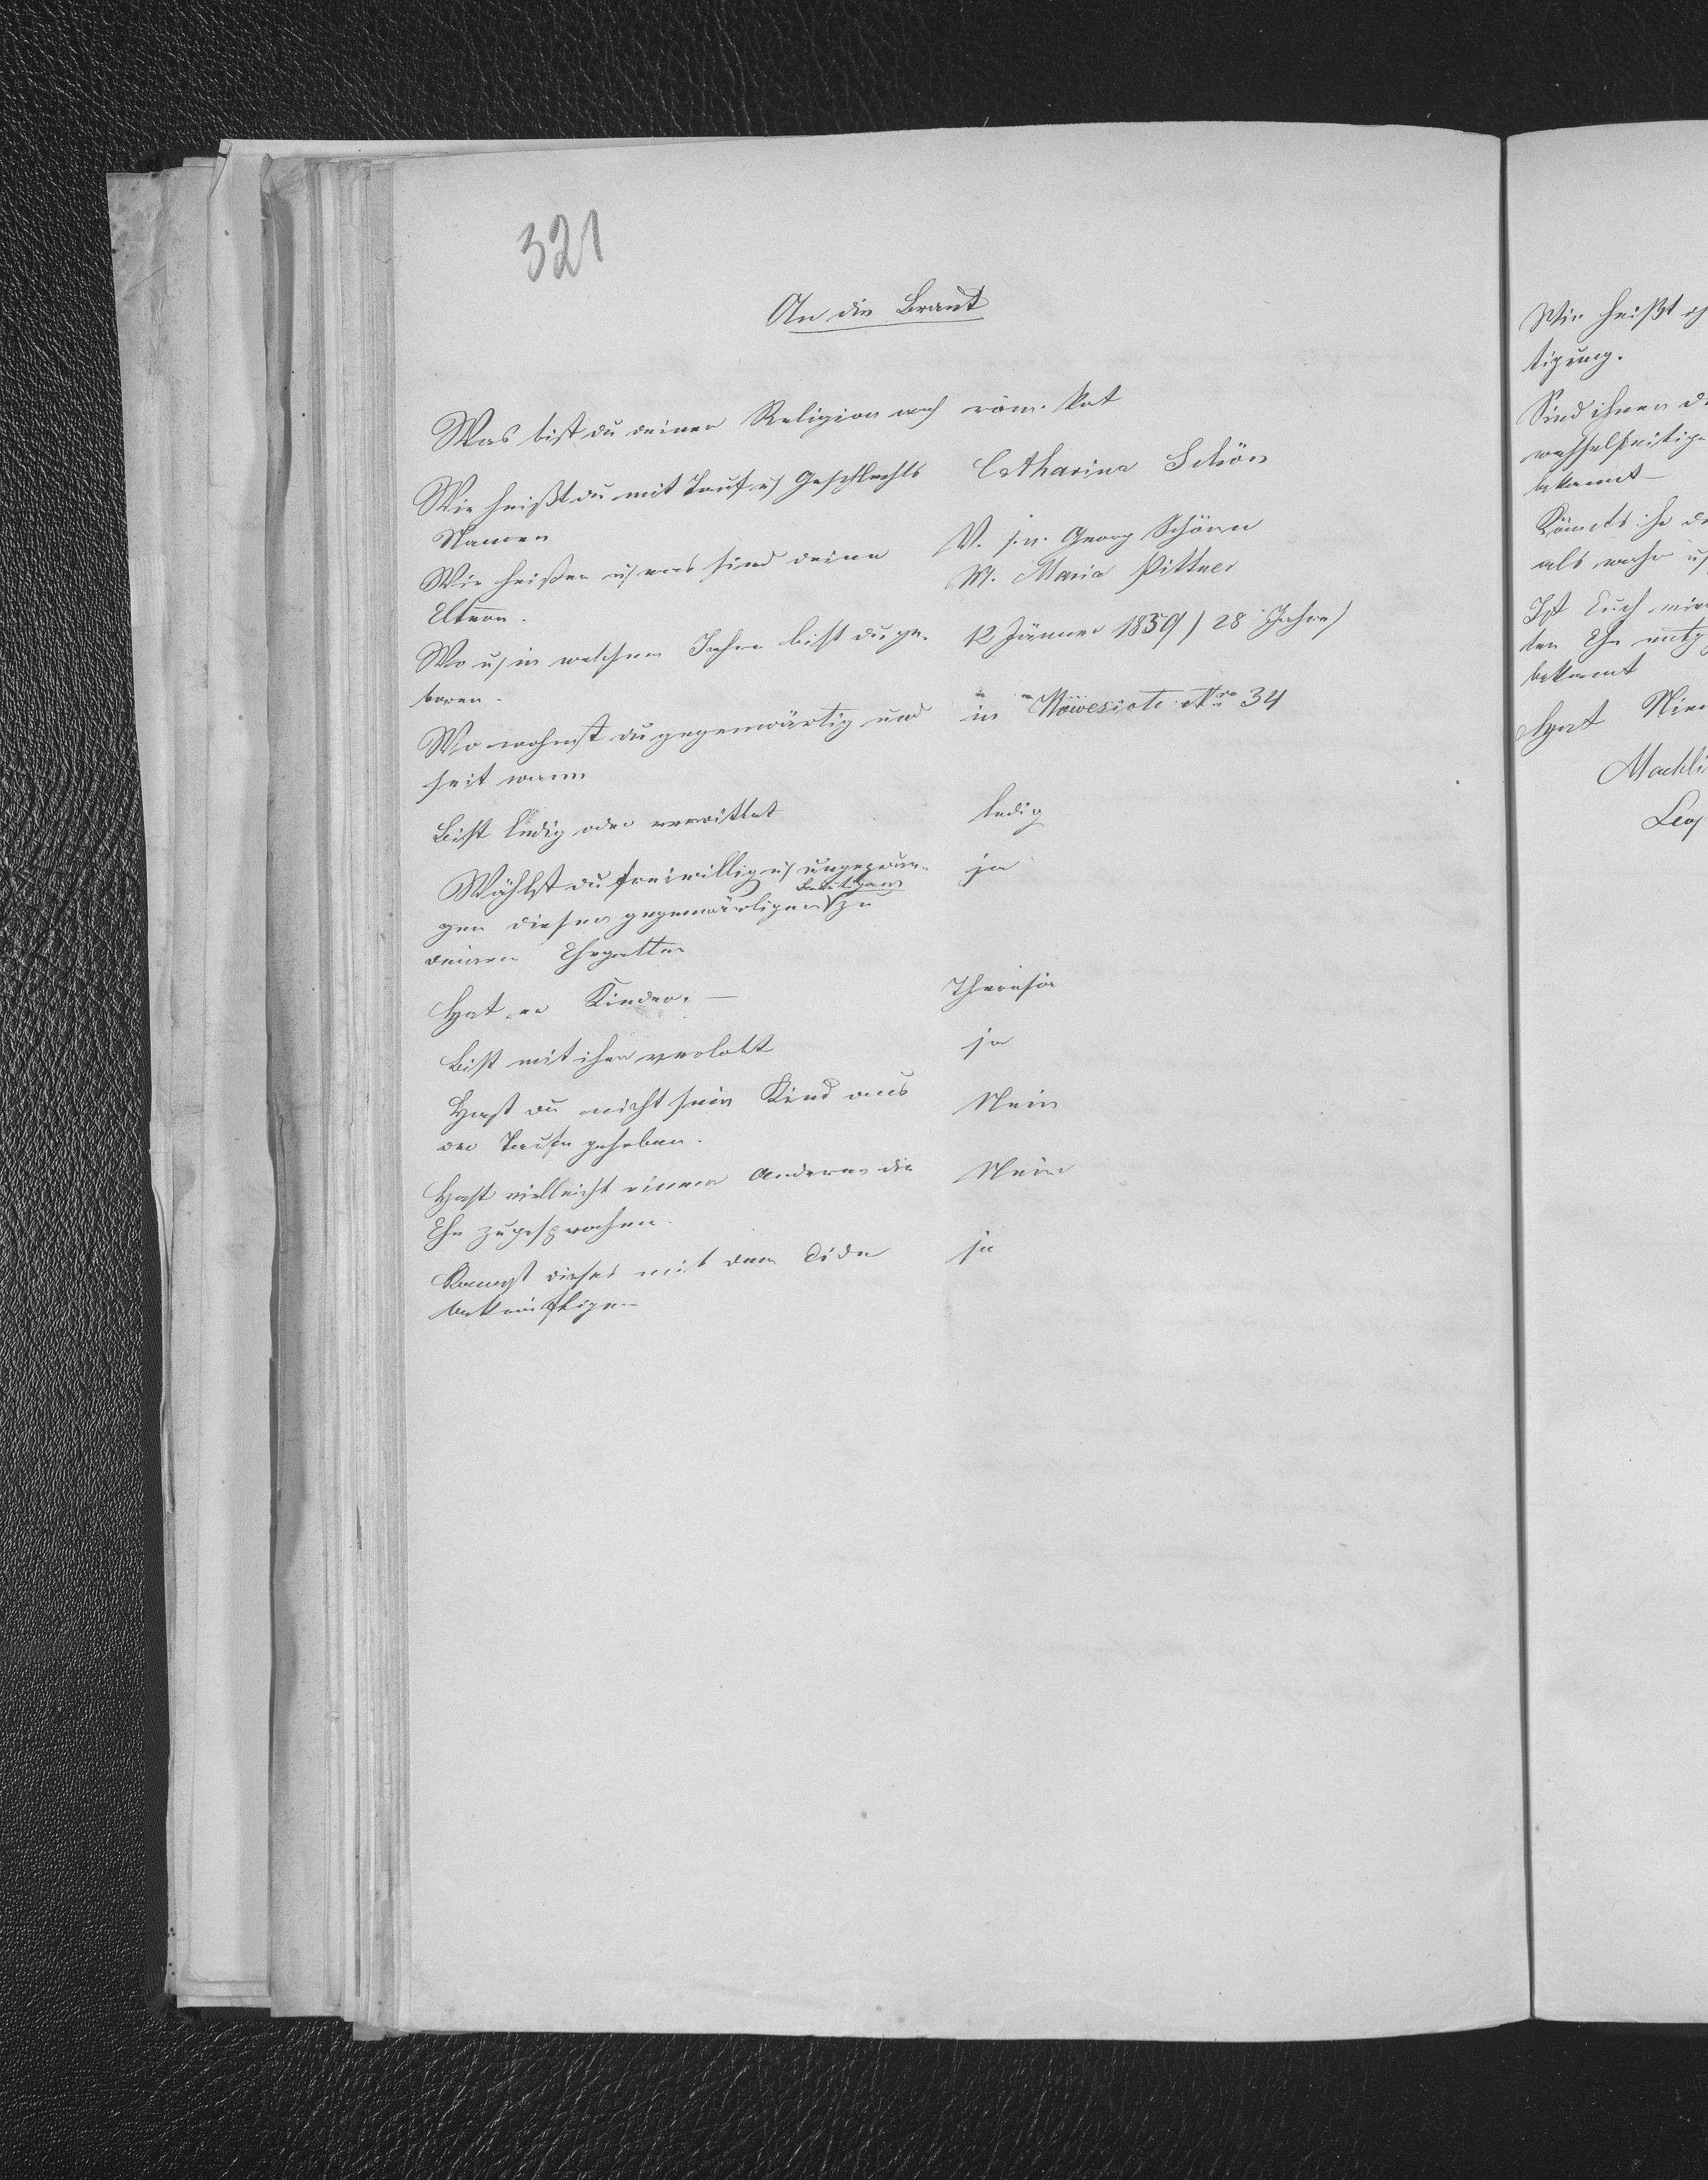 321
An die Braut
Was bist du deiner Religion nach röm. kat
Wie heißt du mit Tauf u/ Geschlechts Catharina Schön
Namen
Wie heißen u/ was sind deine V. Georg Schönn
Eltern. M. Maria Pittner
Wo u/ in welchem Jahre bist du ge- 12 Jänner 1859 / 28 Jahre /
boren.
Wo wohnst du gegenwärtig und in Nro 34
seit wann
Bist ledig oder verwittbt ledig
Wählst du freiwillig u/ ungezwun- ja
gen diesen gegenwärtigen Bräutigam zu
deinem Ehegatten
Hat er Kinder. — Theresia
Bist mit ihm verlobt ja
Hast du nicht sein Kind aus Nein
der Taufe gehoben.
Hast vielleicht einem Anderen die Nein
Ehe zugesprochen.
Kannst dieses mit dem Eide ja
bekräftigen
Wie heißt
tigung.
Sind ihnen
wechselseitige
bekannt —
Könnts ihr
als wahr u/
Ist Euch
ten Ehe
bekannt
Hat